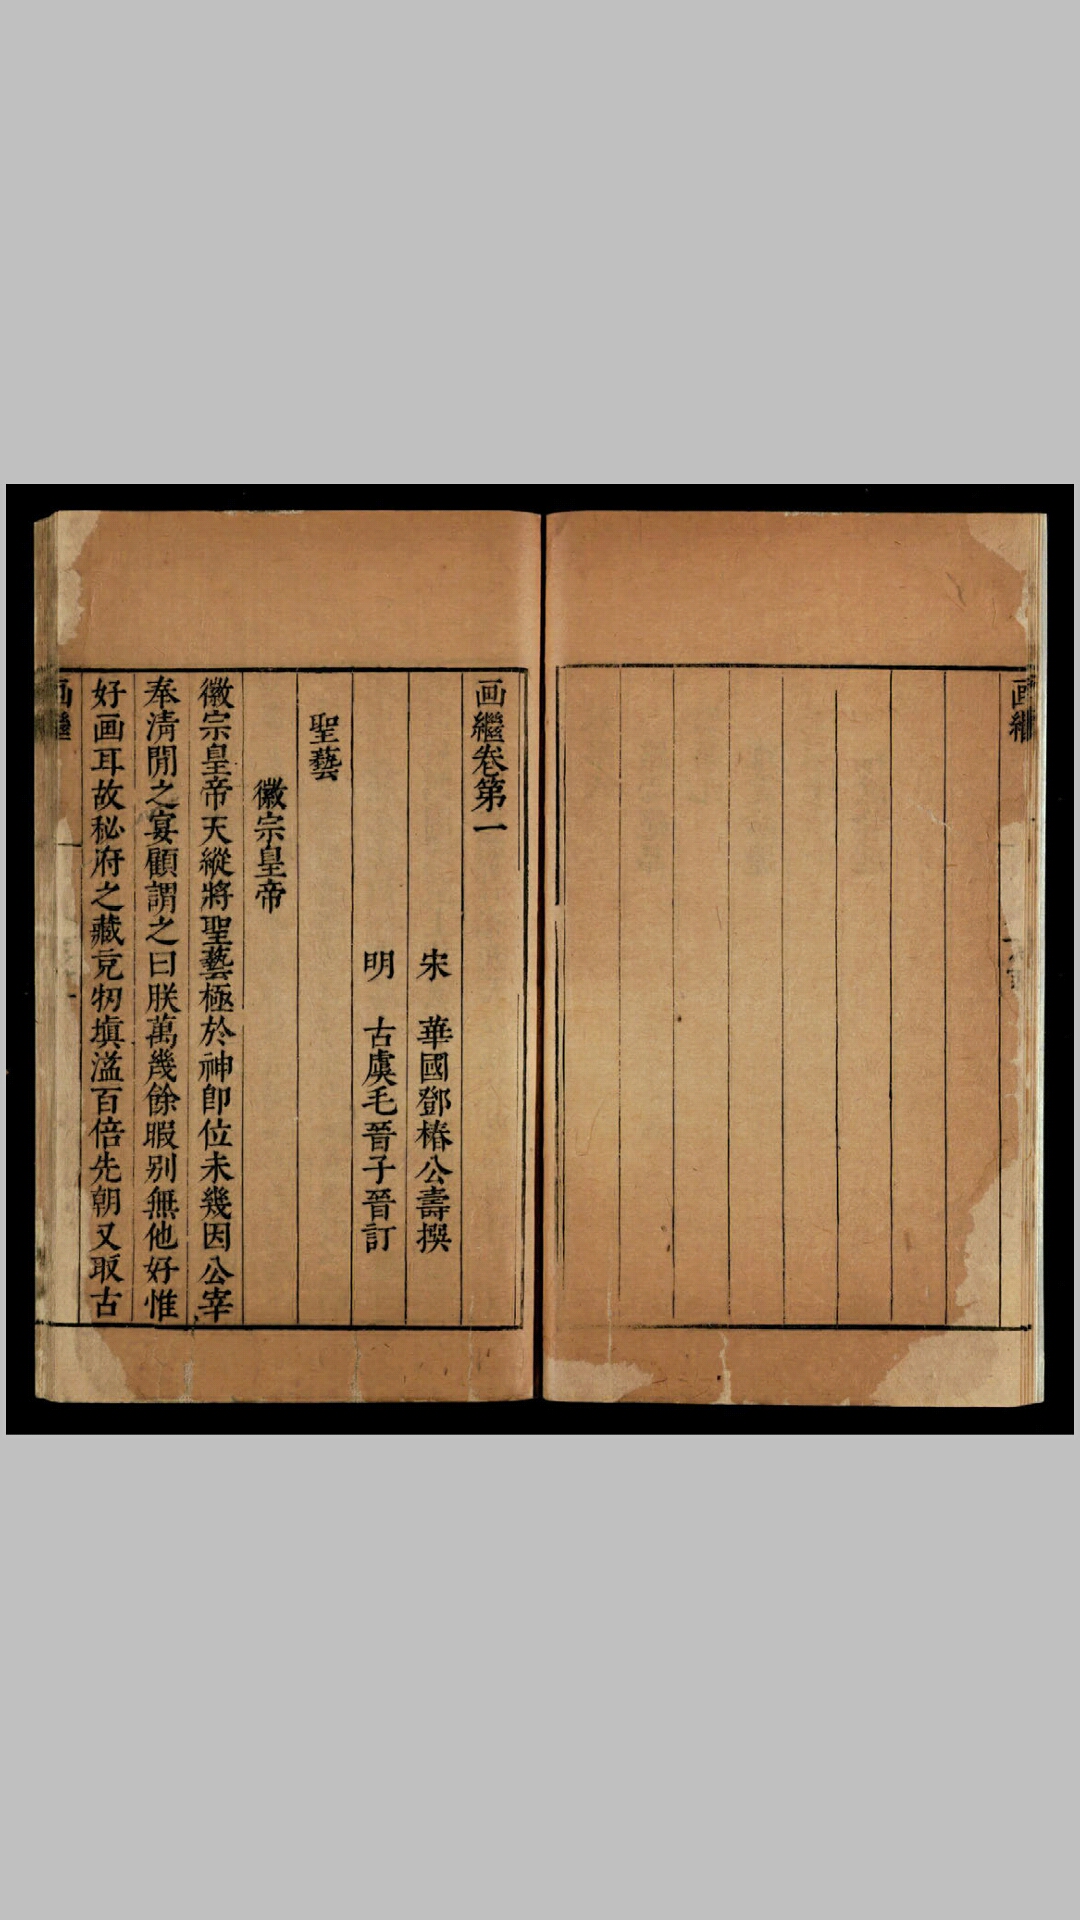 画繼
画繼卷第一
宋 華國鄧椿公壽撰
明 古虞毛晉子晉訂
聖藝
徽宗皇帝
徽宗皇帝天縱將聖藝極於神卽位未幾因公宰
奉淸閒之宴顧謂之曰朕萬幾餘暇别無他好惟
好画耳故秘府之藏充牣塡溢百倍先朝又取古
画繼